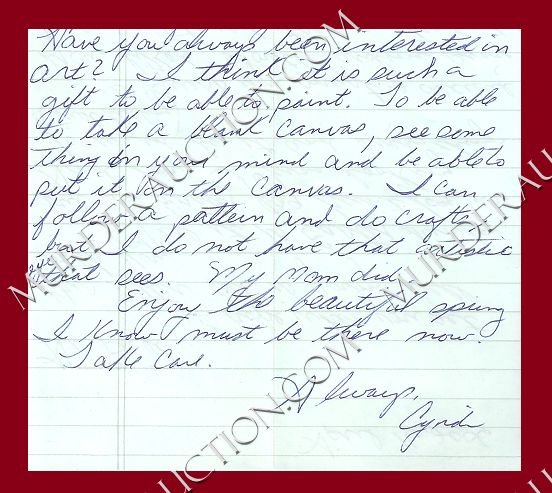 Have you always been interested in
art? I think it is such a
gift to be able to paint. To be able
to take a blank canvas, see some
thing in your mind and be able to
put it on the canvas. I can
follow a pattern and do crafts
but I do not have that artistic
eye that sees. My mom did.
Enjoy the beautiful spring
I know must be there now.
Take care.
Always,
MURDERAUCTION.COM